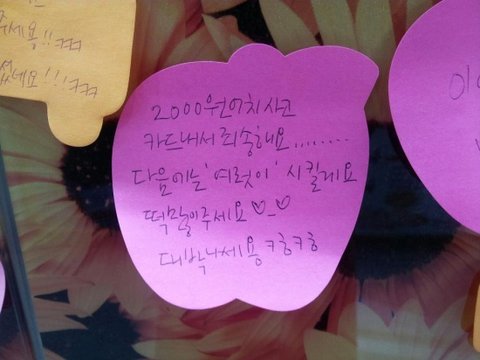 주세용!!ㅋㅋ
셨세요!!!ㅋㅋ
2000원어치 사고
카드내서 죄송해요........
다음에는 '여럿이' 시킬게요
떡많이주세요 ♡_♡
대박나세용 ㅋㅎㅋㅎ